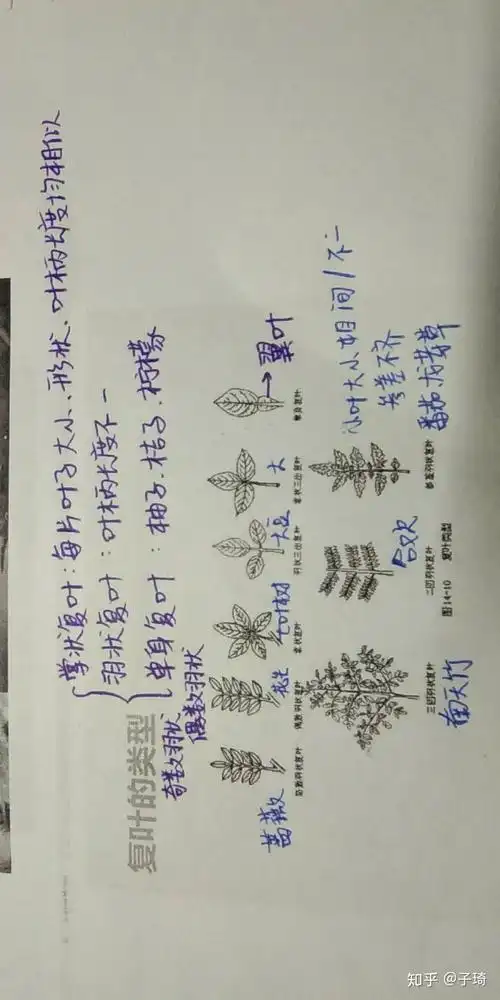 掌状复叶：每片叶子大小、形状、叶柄长度均相似
羽状复叶：叶柄长度不一
单身复叶：柚子.桔子.柠檬
复叶的类型
奇数羽状、
偶数羽状
蔷薇
花生
七叶树
大豆
→翼叶
奇数羽状复叶
偶数羽状复叶
掌状复叶
羽状三出复叶
掌状三出复叶
单身复叶
小叶大小相间/不一
参差不齐
南天竹
合欢
番茄
三回羽状复叶
二回羽状复叶
参差羽状复叶
图14-10 复叶类型
知乎 @子琦